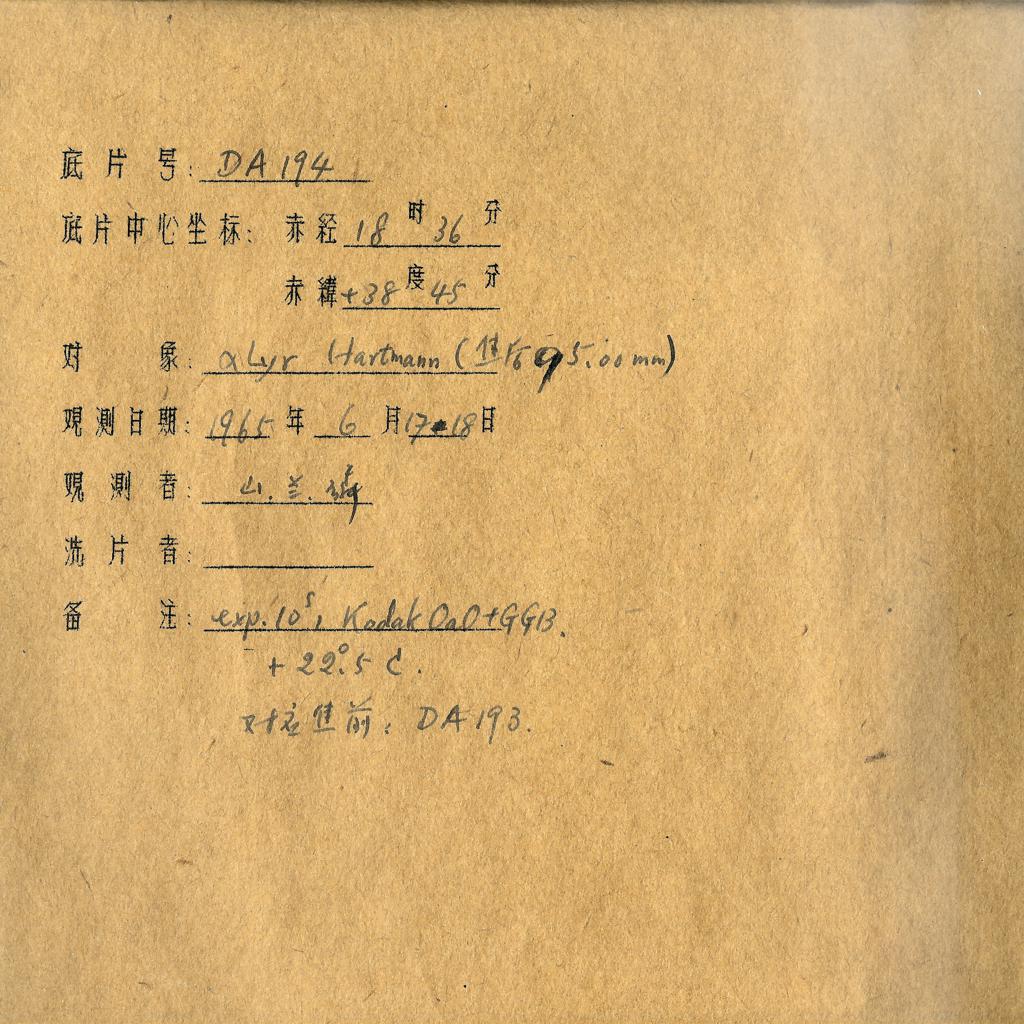 底片号: DA194
底片中心坐标: 赤经 18 时 36 分
赤緯 +38 度 45 分
对象: αLyr Hartmann (焦后 95.00mm)
观测日期: 1965 年 6 月 17-18 日
观测者: 山.兰.
洗片者:
备注: exp. 10ˢ, Kodak OaO+GG13.
+22°.5 C.
对应焦前: DA193.